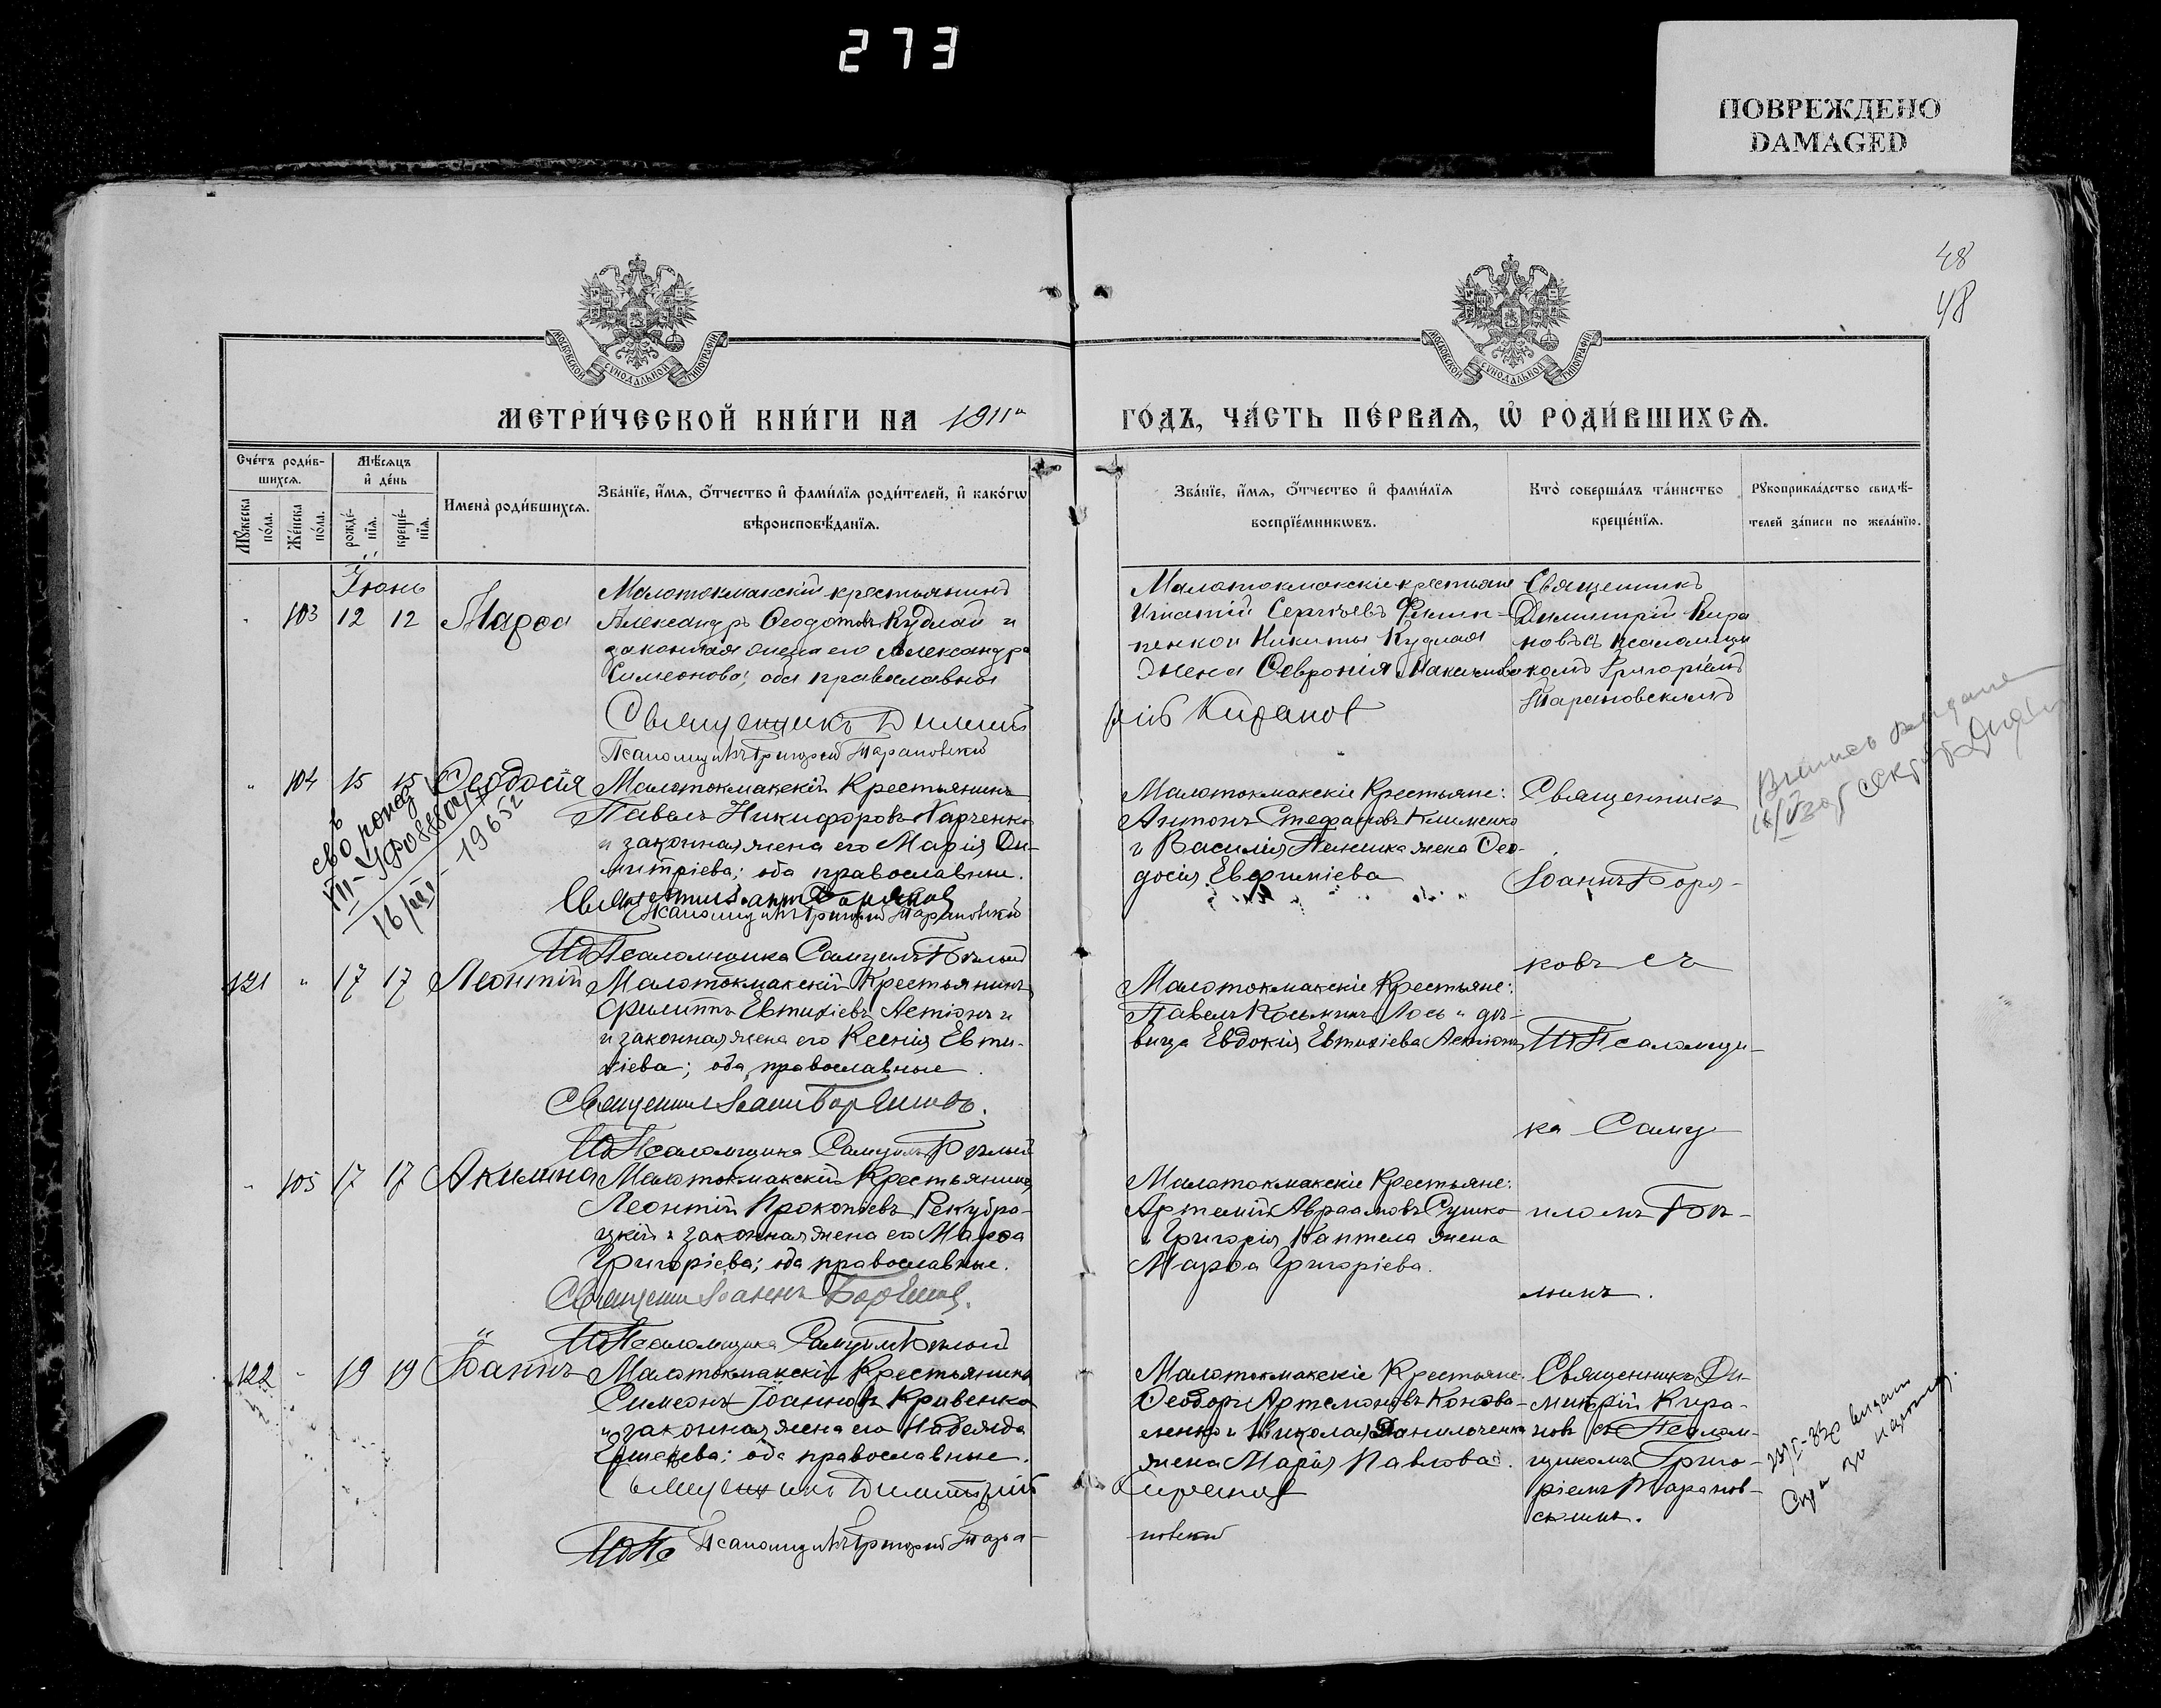 273
ПОВРЕЖДЕНО
DAMAGED
48
48
МОСКОВСКОЙ СѴНОДАЛЬНОЙ ТИПОГРАФІИ
МОСКОВСКОЙ СѴНОДАЛЬНОЙ ТИПОГРАФІИ
МЕТРИ́ЧЕСКОЙ КНИ́ГИ НА 1911й
ГО́ДЪ, ЧА́СТЬ ПЕ́РВАѦ, Ѡ҆ РОДИ́ВШИХСѦ.
Сче́тъ роди́в-
шихсѧ.
Мѣ́сѧцъ
и҆ де́нь
Мꙋ́жеска
по́ла.
Же́нска
по́ла.
рожде́-
нїѧ.
креще́-
нїѧ.
Имена̀ роди́вшихсѧ.
Зва́нїе, и҆́мѧ, о҆́тчество и҆ фами́лїѧ роди́телей, и҆ како́гѡ
вѣроисповѣ́данїѧ.
Зва́нїе, и҆́мѧ, о҆́тчество и҆ фами́лїѧ
воспрїе́мникѡвъ.
Кто̀ соверша́лъ та́инство
креще́нїѧ.
Рꙋкоприкла́дство свидѣ́-
телей за́писи по жела́нїю.
Іюнь
" 103 12 12 Марѳа
Малотокмакскій крестьянинъ
Александръ Ѳеодотовъ Кудлай и
законная жена его Александра
Симеонова; оба православные
Священникъ Димит
Псаломщикъ Григорій Тарановскій
Малотокмакскіе крестьяне
Игнатій Сергѣевъ Филип-
пенко и Никиты Кудлая
жена Ѳевронія Максимова
рій Киранов
Священникъ
Димитрій Кира
новъ съ псаломщи
комъ Григоріемъ
Тарановскимъ
" 104 15 15 Ѳеодосія
Малотокмакскій Крестьянинъ
Павелъ Никифоровъ Харченко
и законная жена его Марія Ди-
митріева; оба православные.
Псаломщикъ Григорій Тарановскій
ИдПсаломщика Самуилъ Бѣлый
16/III - 1965г
Малотокмакскіе Крестьяне:
Антонъ Стефановъ Клименко
и Василія жена Ѳео-
досія Евфиміева
Священникъ
Іоаннъ Боря-
ковъ съ
ИдПсаломщи-
ка Саму
иломъ Бѣ-
лымъ.
121 " 17 17 Леонтій
Малотокмакскій Крестьянинъ
Филиппъ Евтихіевъ Астіонъ и
и законная жена его Ксенія Евти-
хіева; оба православные.
Священник Іоанн
ИдПсаломщика Самуилъ Бѣлый
Малотокмакскіе Крестьяне:
Павелъ Косьминъ Лось и дѣ-
вица Евдокія Евтихіева Астіонъ
" 105 17 17 Акилина
Малотокмакскій Крестьянинъ
Леонтій Прокопіевъ
и законная жена его Марѳа
Григоріева; оба православные.
Священник Іоаннъ
ИдПсаломщика Самуилъ Бѣлый
Малотокмакскіе Крестьяне:
Артемій Авраамовъ Сушко
и Григорія Каптела жена
Марѳа Григоріева.
122 " 19 19 Іоаннъ
Малотокмакскій Крестьянинъ
Симеонъ Іоанновъ Кривенко
и законная жена его Надежда
оба православные.
Священникъ Димитрій
ИдПс Псаломщикъ Григорій Тара-
Малотокмакскіе Крестьяне:
Ѳеодоръ Артемоновъ Конова-
ленко и Николая Данильченка
жена Марія Павлова.
Киранов
новскій
Священникъ Ди-
митрій Кира-
новъ съ Псалом-
щикомъ Григо-
ріемъ Таранов-
скимъ.